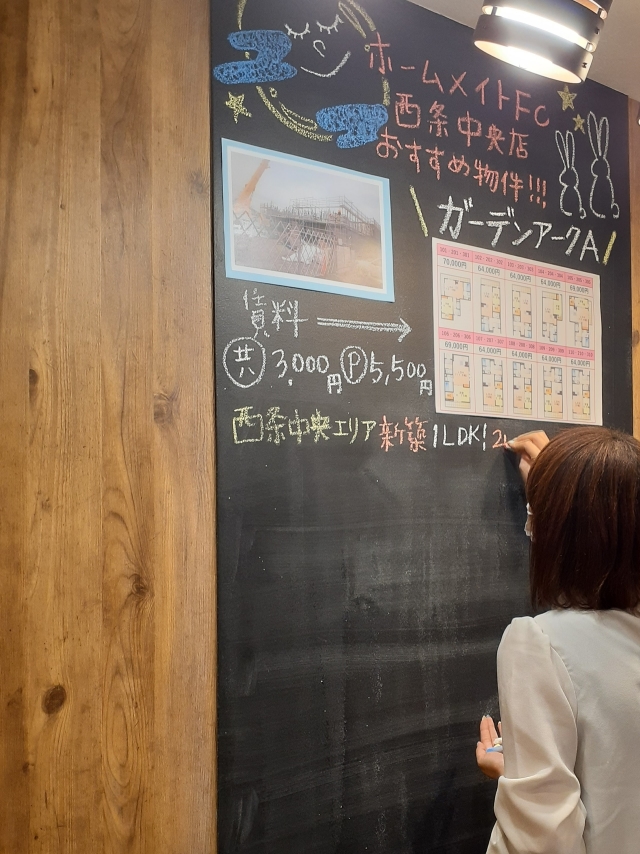 ホームメイトFC
西条中央店
おすすめ物件!!!
\ガーデンアークA/
賃料 →
共 3,000円 P 5,500円
70,000円 64,000円 64,000円 64,000円 69,000円
69,000円 64,000円 64,000円 64,000円 64,000円
西条中央エリア新築1LDK! 2